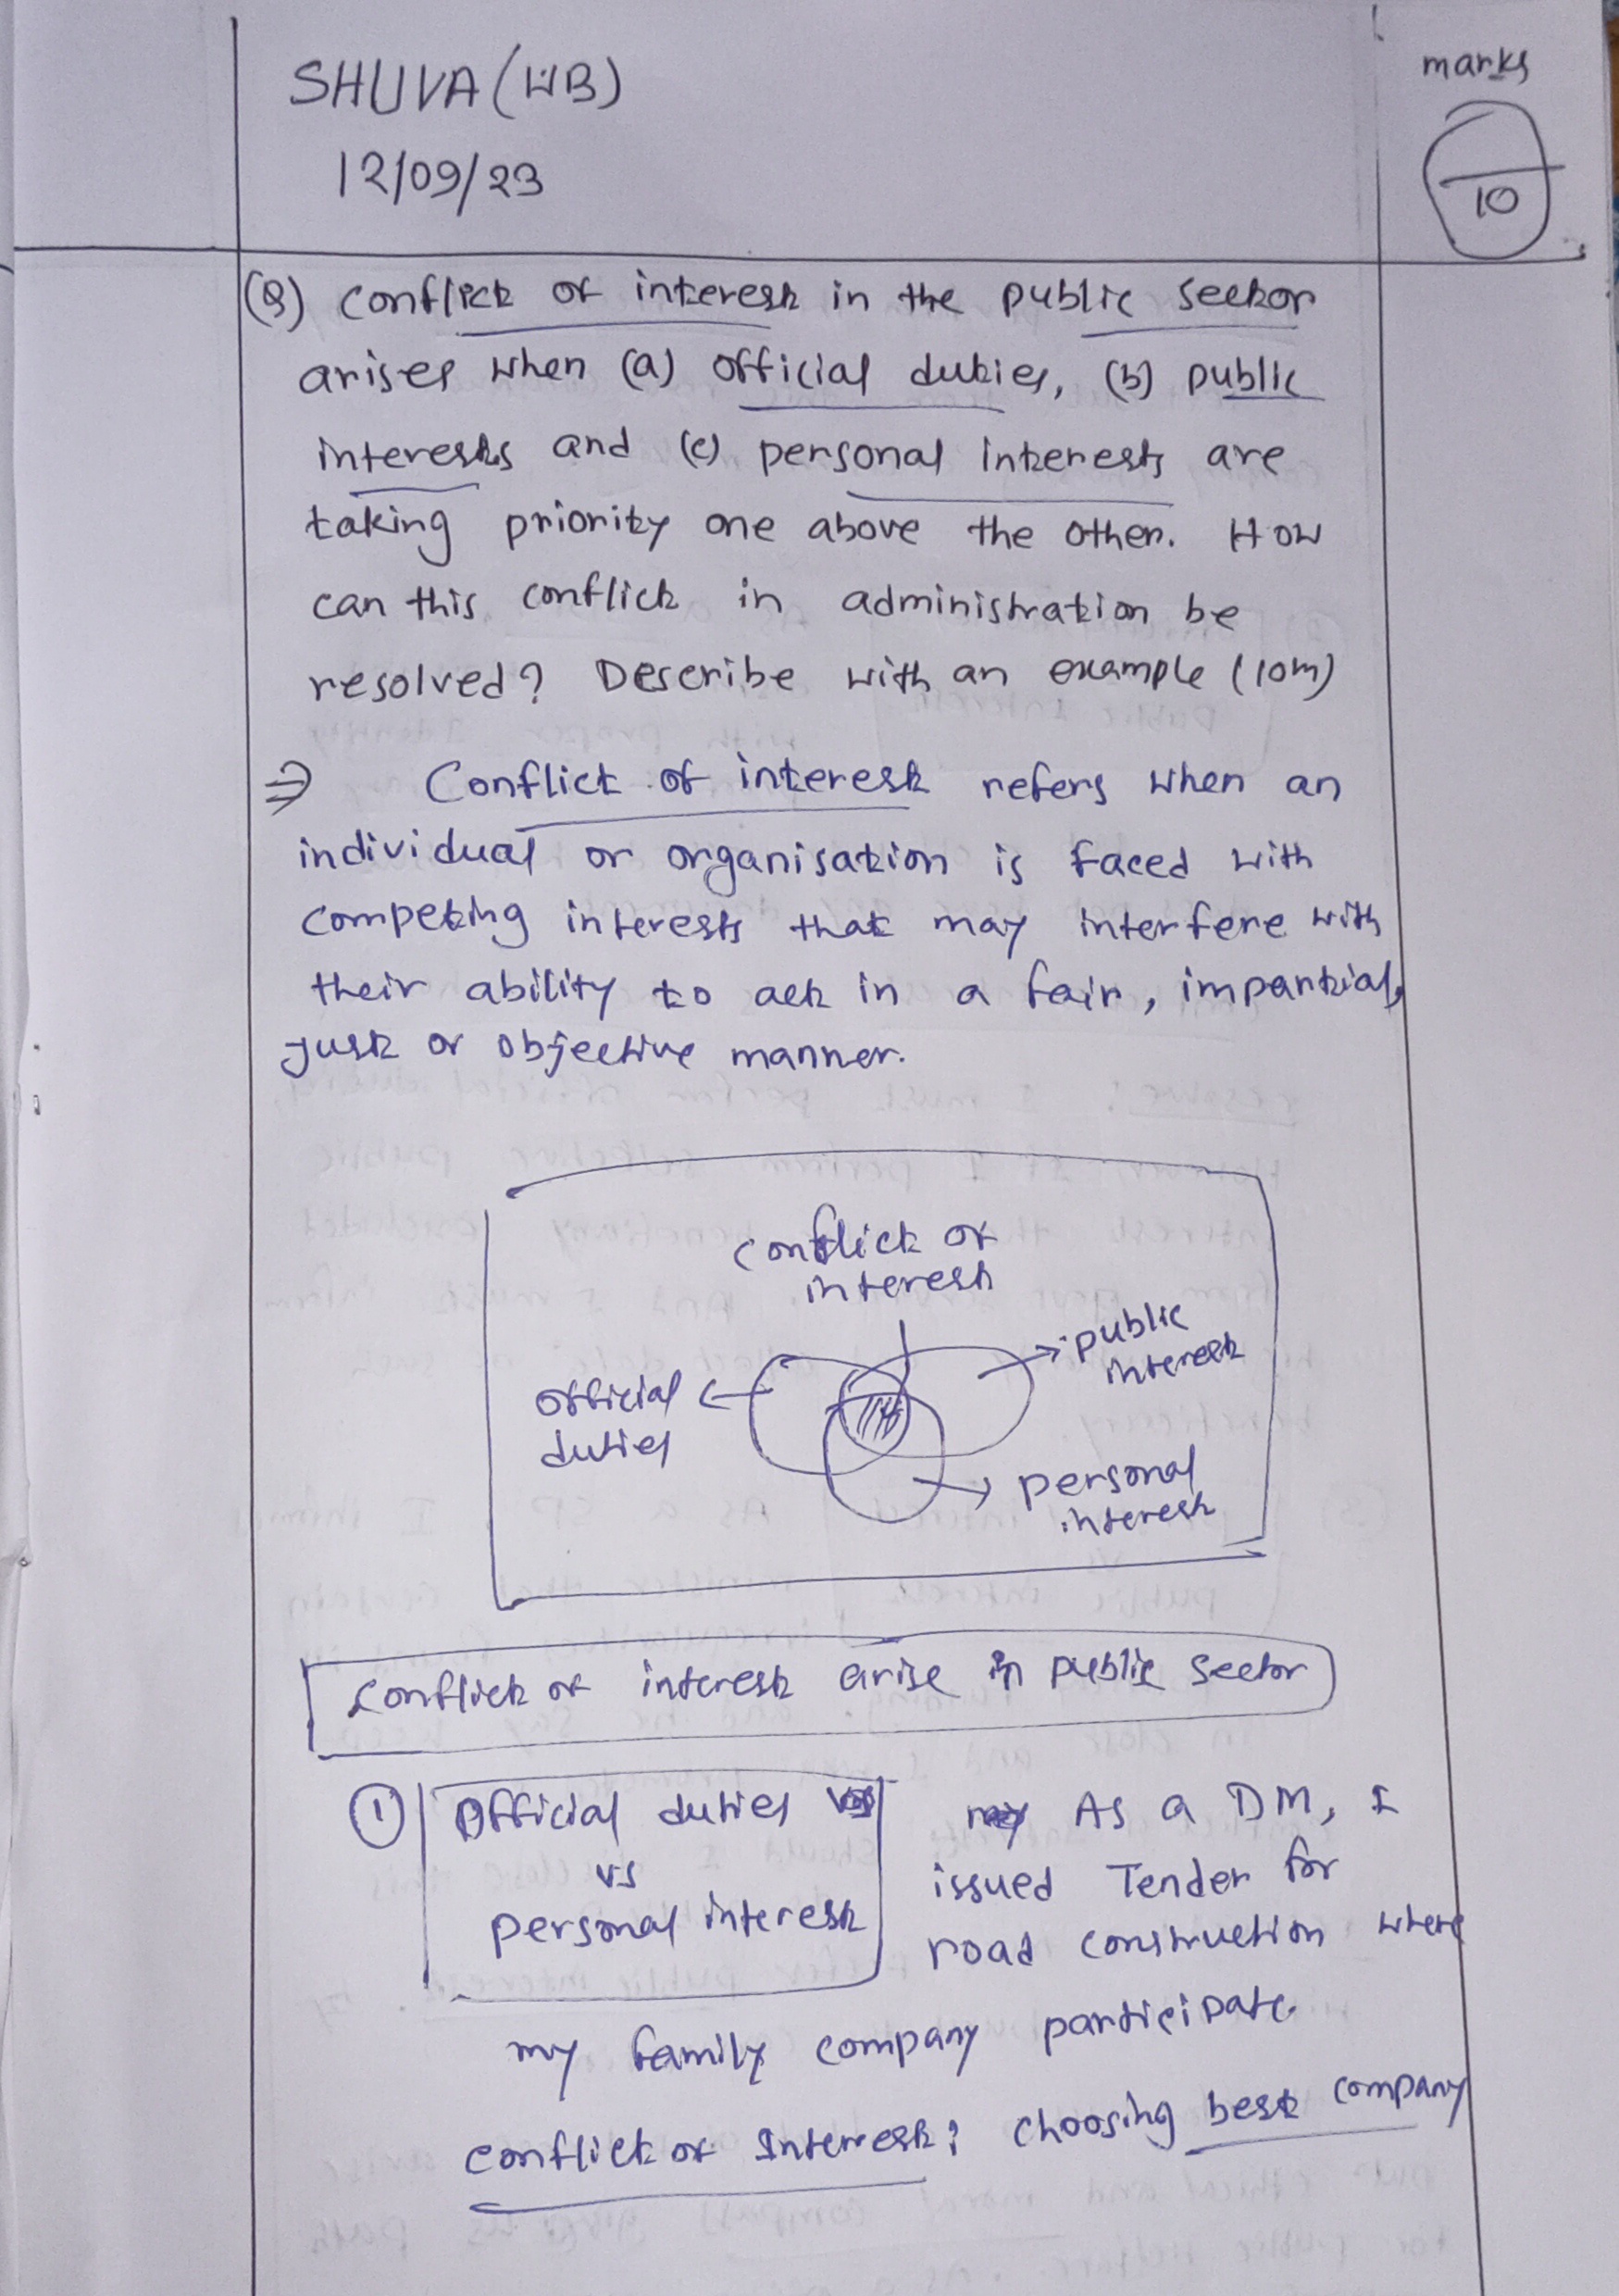 SHUVA (WB)
12/09/23
marks
10
(Q) Conflict of interest in the public sector
arises when (a) official duties, (b) public
interests and (c) personal interests are
taking priority one above the other. How
can this conflict in administration be
resolved? Describe with an example (10m)
⇒ Conflict of interest refers when an
individual or organisation is faced with
competing interests that may interfere with
their ability to act in a fair, impartial,
just or objective manner.
conflict of
interest
public
interest
official
duties
personal
interest
Conflict of interest arise in public sector
① Official duties
vs
personal interest
As a DM, I
issued Tender for
road construction where
my family company participate.
conflict of Interest: choosing best company